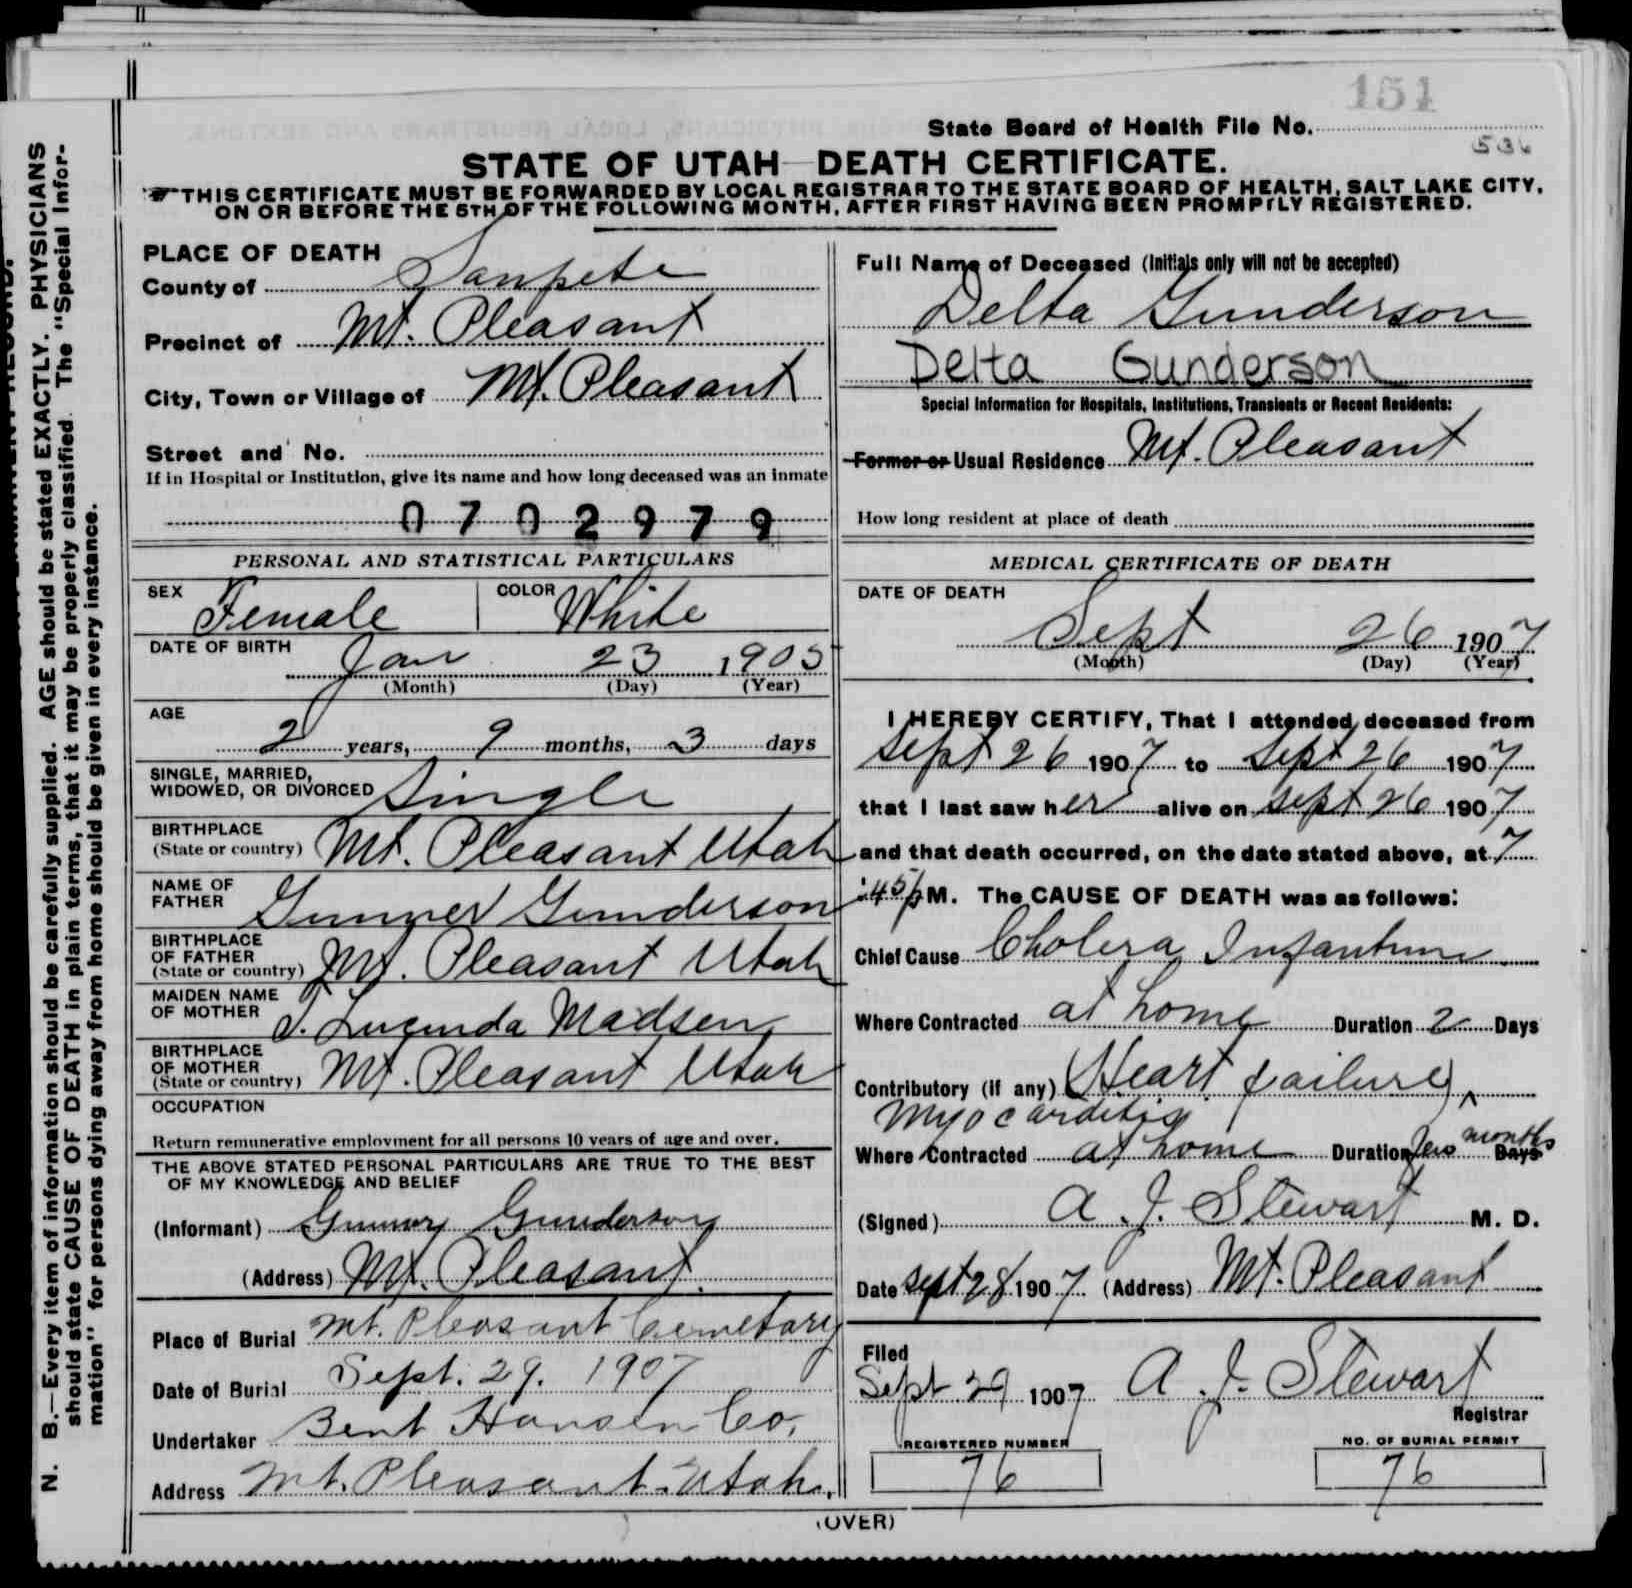 151
State Board of Health File No.
536
STATE OF UTAH—DEATH CERTIFICATE.
THIS CERTIFICATE MUST BE FORWARDED BY LOCAL REGISTRAR TO THE STATE BOARD OF HEALTH, SALT LAKE CITY,
ON OR BEFORE THE 5TH OF THE FOLLOWING MONTH, AFTER FIRST HAVING BEEN PROMPTLY REGISTERED.
N. B.—Every item of information should be carefully supplied. AGE should be stated EXACTLY. PHYSICIANS
should state CAUSE OF DEATH in plain terms, that it may be properly classified. The "Special Infor-
mation" for persons dying away from home should be given in every instance.
PLACE OF DEATH
County of Sanpete
Precinct of Mt. Pleasant
City, Town or Village of Mt. Pleasant
Street and No.
If in Hospital or Institution, give its name and how long deceased was an inmate
0702979
PERSONAL AND STATISTICAL PARTICULARS
SEX Female COLOR White
DATE OF BIRTH Jan 23 1905
(Month) (Day) (Year)
AGE
2 years, 9 months, 3 days
SINGLE, MARRIED,
WIDOWED, OR DIVORCED Single
BIRTHPLACE
(State or country) Mt. Pleasant Utah
NAME OF
FATHER Gunner Gunderson
BIRTHPLACE
OF FATHER
(State or country) Mt. Pleasant Utah
MAIDEN NAME
OF MOTHER Lucinda Madsen
BIRTHPLACE
OF MOTHER
(State or country) Mt. Pleasant Utah
OCCUPATION
Return remunerative employment for all persons 10 years of age and over.
THE ABOVE STATED PERSONAL PARTICULARS ARE TRUE TO THE BEST
OF MY KNOWLEDGE AND BELIEF
(Informant) Gunner Gunderson
(Address) Mt. Pleasant
Place of Burial Mt. Pleasant Cemetary
Date of Burial Sept. 29. 1907
Undertaker Bent Hansen Co.
Address Mt. Pleasant. Utah.
Full Name of Deceased (Initials only will not be accepted)
Delta Gunderson
Delta Gunderson
Special Information for Hospitals, Institutions, Transients or Recent Residents:
Former or Usual Residence Mt. Pleasant
How long resident at place of death
MEDICAL CERTIFICATE OF DEATH
DATE OF DEATH
Sept 26 1907
(Month) (Day) (Year)
I HEREBY CERTIFY, That I attended deceased from
Sept 26 1907 to Sept 26 1907
that I last saw her alive on Sept 26 1907
and that death occurred, on the date stated above, at 7
:45 p M. The CAUSE OF DEATH was as follows:
Chief Cause Cholera Infantum
Where Contracted at home Duration 2 Days
Contributory (if any) (Heart failure)
Myocarditis
Where Contracted at home Duration few months Days
(Signed) A. J. Stewart M. D.
Date Sept 28 1907 (Address) Mt. Pleasant
Filed
Sept 29 1907 A. J. Stewart
Registrar
REGISTERED NUMBER
76
NO. OF BURIAL PERMIT
76
(OVER)